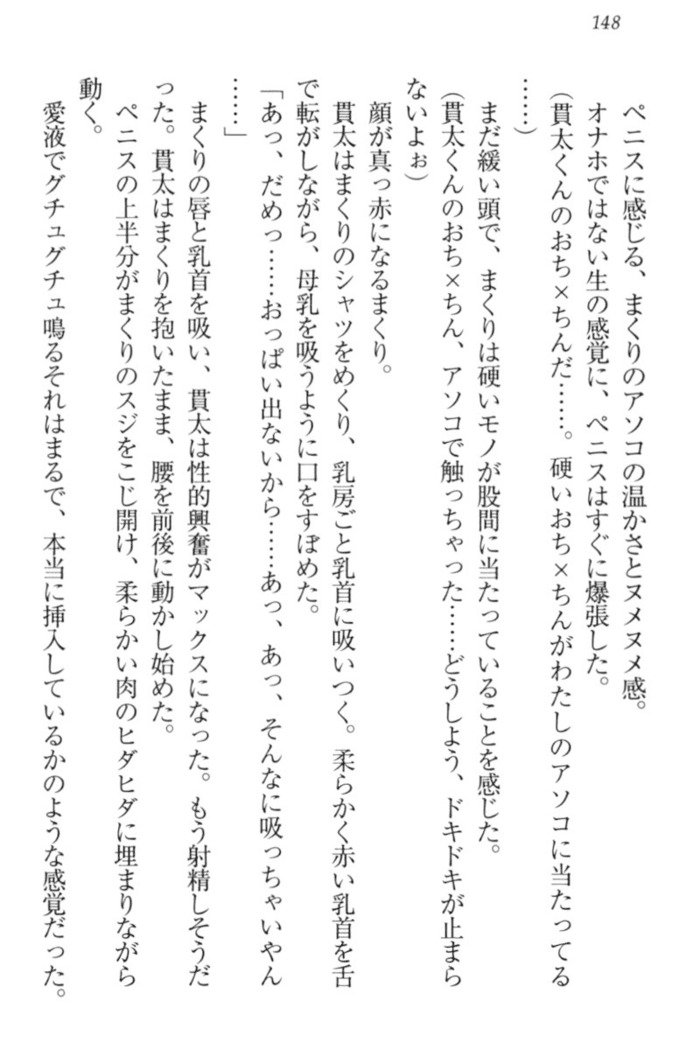 148
ペニスに感じる、まくりのアソコの温かさとヌメヌメ感。
オナホではない生の感覚に、ペニスはすぐに爆張した。
(貫太くんのおち×ちんだ……。硬いおち×ちんがわたしのアソコに当たってる
……)
まだ緩い頭で、まくりは硬いモノが股間に当たっていることを感じた。
(貫太くんのおち×ちん、アソコで触っちゃった……どうしよう、ドキドキが止まら
ないよぉ)
顔が真っ赤になるまくり。
貫太はまくりのシャツをめくり、乳房ごと乳首に吸いつく。柔らかく赤い乳首を舌
で転がしながら、母乳を吸うように口をすぼめた。
「あっ、だめっ……おっぱい出ないから……あっ、あっ、そんなに吸っちゃいやん
……」
まくりの唇と乳首を吸い、貫太は性的興奮がマックスになった。もう射精しそうだ
った。貫太はまくりを抱いたまま、腰を前後に動かし始めた。
ペニスの上半分がまくりのスジをこじ開け、柔らかい肉のヒダヒダに埋まりながら
動く。
愛液でグチュグチュ鳴るそれはまるで、本当に挿入しているかのような感覚だった。